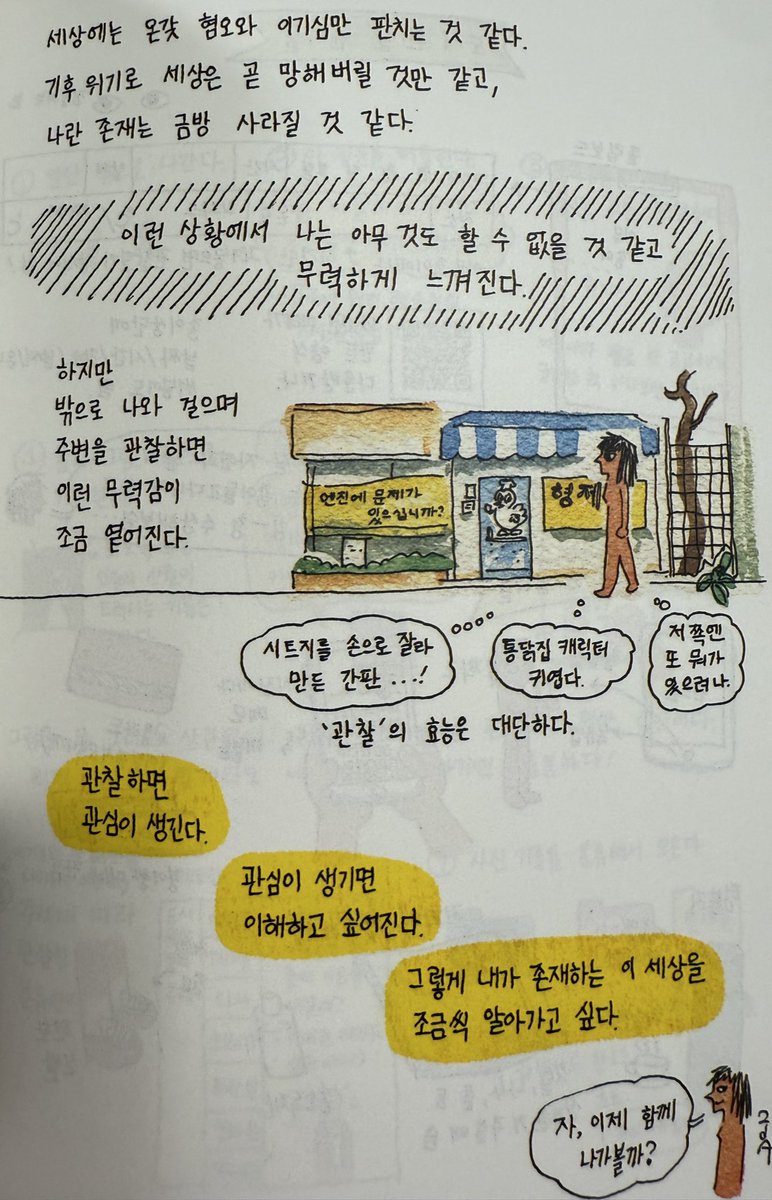 세상에는 온갖 혐오와 이기심만 판치는 것 같다.
기후 위기로 세상은 곧 망해버릴 것만 같고,
나란 존재는 금방 사라질 것 같다.
이런 상황에서 나는 아무것도 할 수 없을 것 같고
무력하게 느껴진다.
하지만
밖으로 나와 걸으며
주변을 관찰하면
이런 무력감이
조금 옅어진다.
엔진에 문제가
있으십니까?
형제
시트지를 손으로 잘라
만든 간판...!
통닭집 캐릭터
귀엽다.
저 쪽엔
또 뭐가
있으려나.
'관찰'의 효능은 대단하다.
관찰하면
관심이 생긴다.
관심이 생기면
이해하고 싶어진다.
그렇게 내가 존재하는 이 세상을
조금씩 알아가고 싶다.
자, 이제 함께
나가볼까?